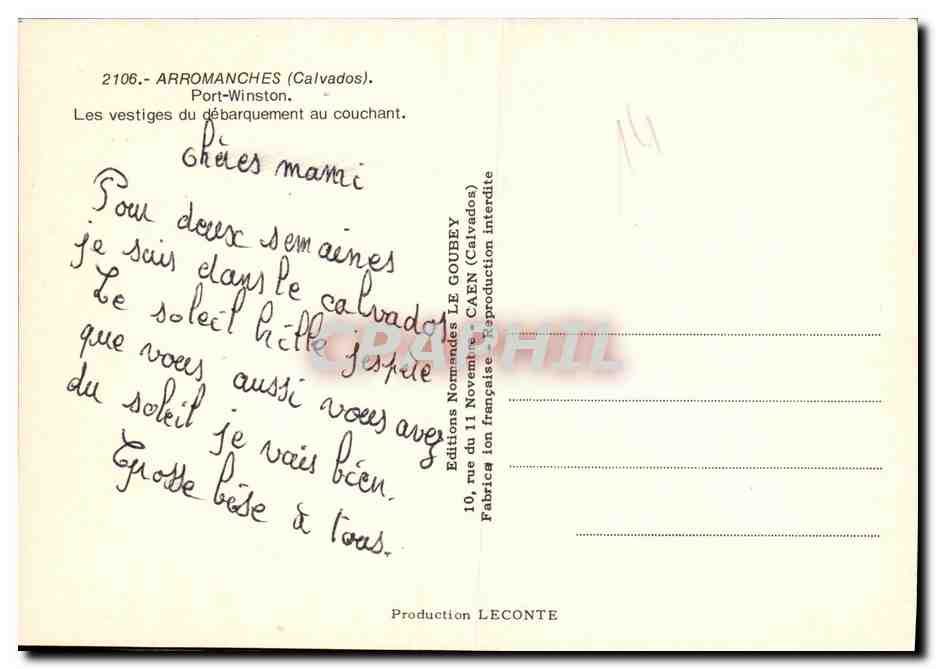 2106.- ARROMANCHES (Calvados).
Port-Winston.
Les vestiges du débarquement au couchant.
chères mami
Pour deux semaines
je suis dans le calvados
Le soleil brille j'espère
que vous aussi vous avez
du soleil je vais bien.
Grosse bise à tous.
14
Editions Normandes LE GOUBEY
10, rue du 11 Novembre - CAEN (Calvados)
Fabrica ion française - Reproduction interdite
CPAPHIL
Production LECONTE